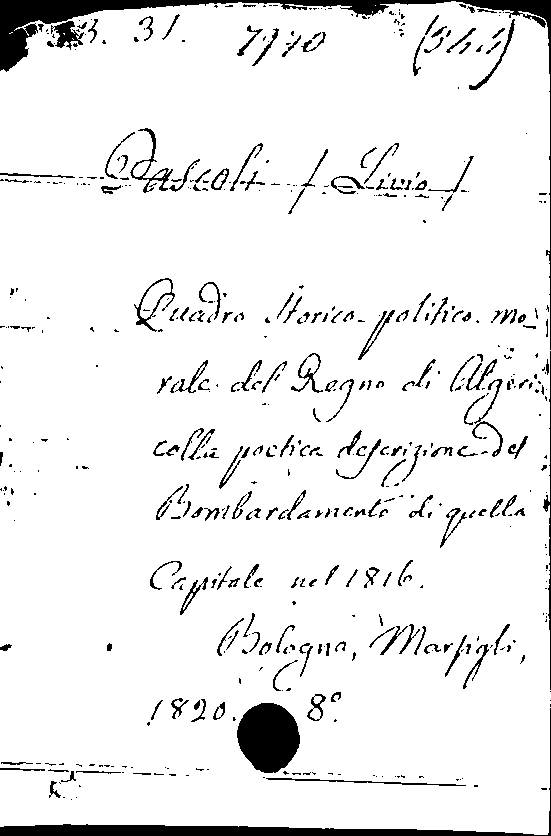 3. 31. 7970 (344)
Pascoli / Livio /
Quadro storico-politico-mo-
rale del Regno di Algeri
colla poetica descrizione del
Bombardamento di quella
Capitale nel 1816.
Bologna, Marsigli,
1820. 8º.